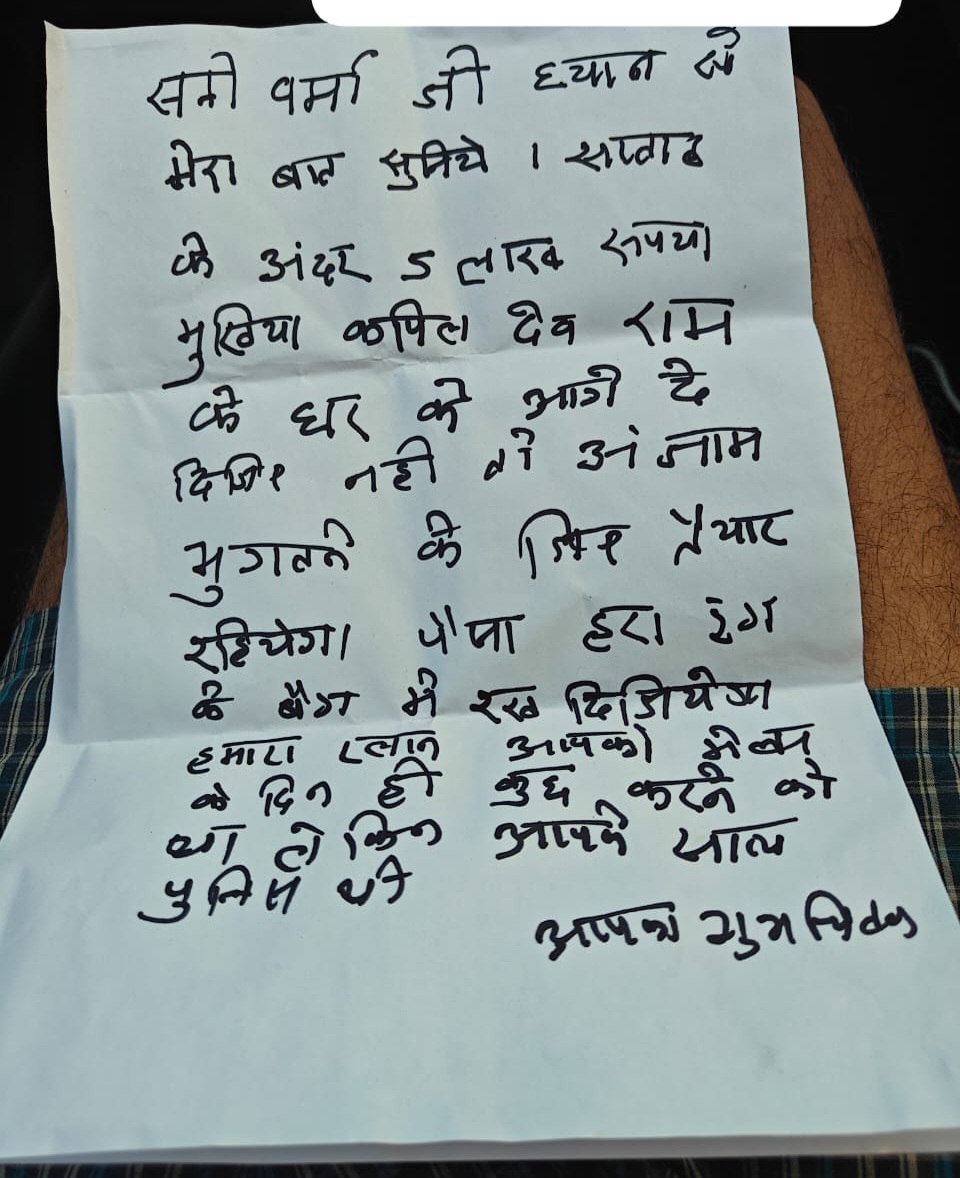 सनी वर्मा जी ध्यान से
मेरा बात सुनिये । सप्ताह
के अंदर 5 लाख रूपया
मुखिया कपिल देव राम
के घर के आगे दे
दिजिए नही तो अंजाम
भुगतने के लिए तैयार
रहियेगा पैसा हरा रंग
के बैग मे रख दिजियेगा
हमारा प्लान आपको
के दिन ही कुछ करने को
था लेकिन आपके साथ
पुलिस थी
आपका शुभ चिंतक